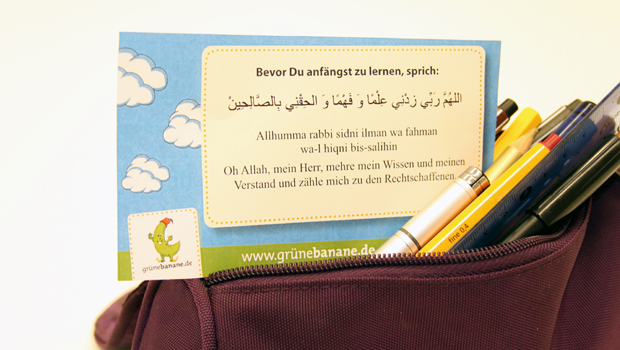 Bevor Du anfängst zu lernen, sprich:
اللهُمَّ رَبِّي زِدْنِي عِلْمًا وَ فَهْمًا وَ الحِقْنِي بِالصَّالِحِينْ
Allhumma rabbi sidni ilman wa fahman
wa-l hiqni bis-salihin
Oh Allah, mein Herr, mehre mein Wissen und meinen
Verstand und zähle mich zu den Rechtschaffenen.
grünebanane.de
www.grünebanane.de
fine 0.4